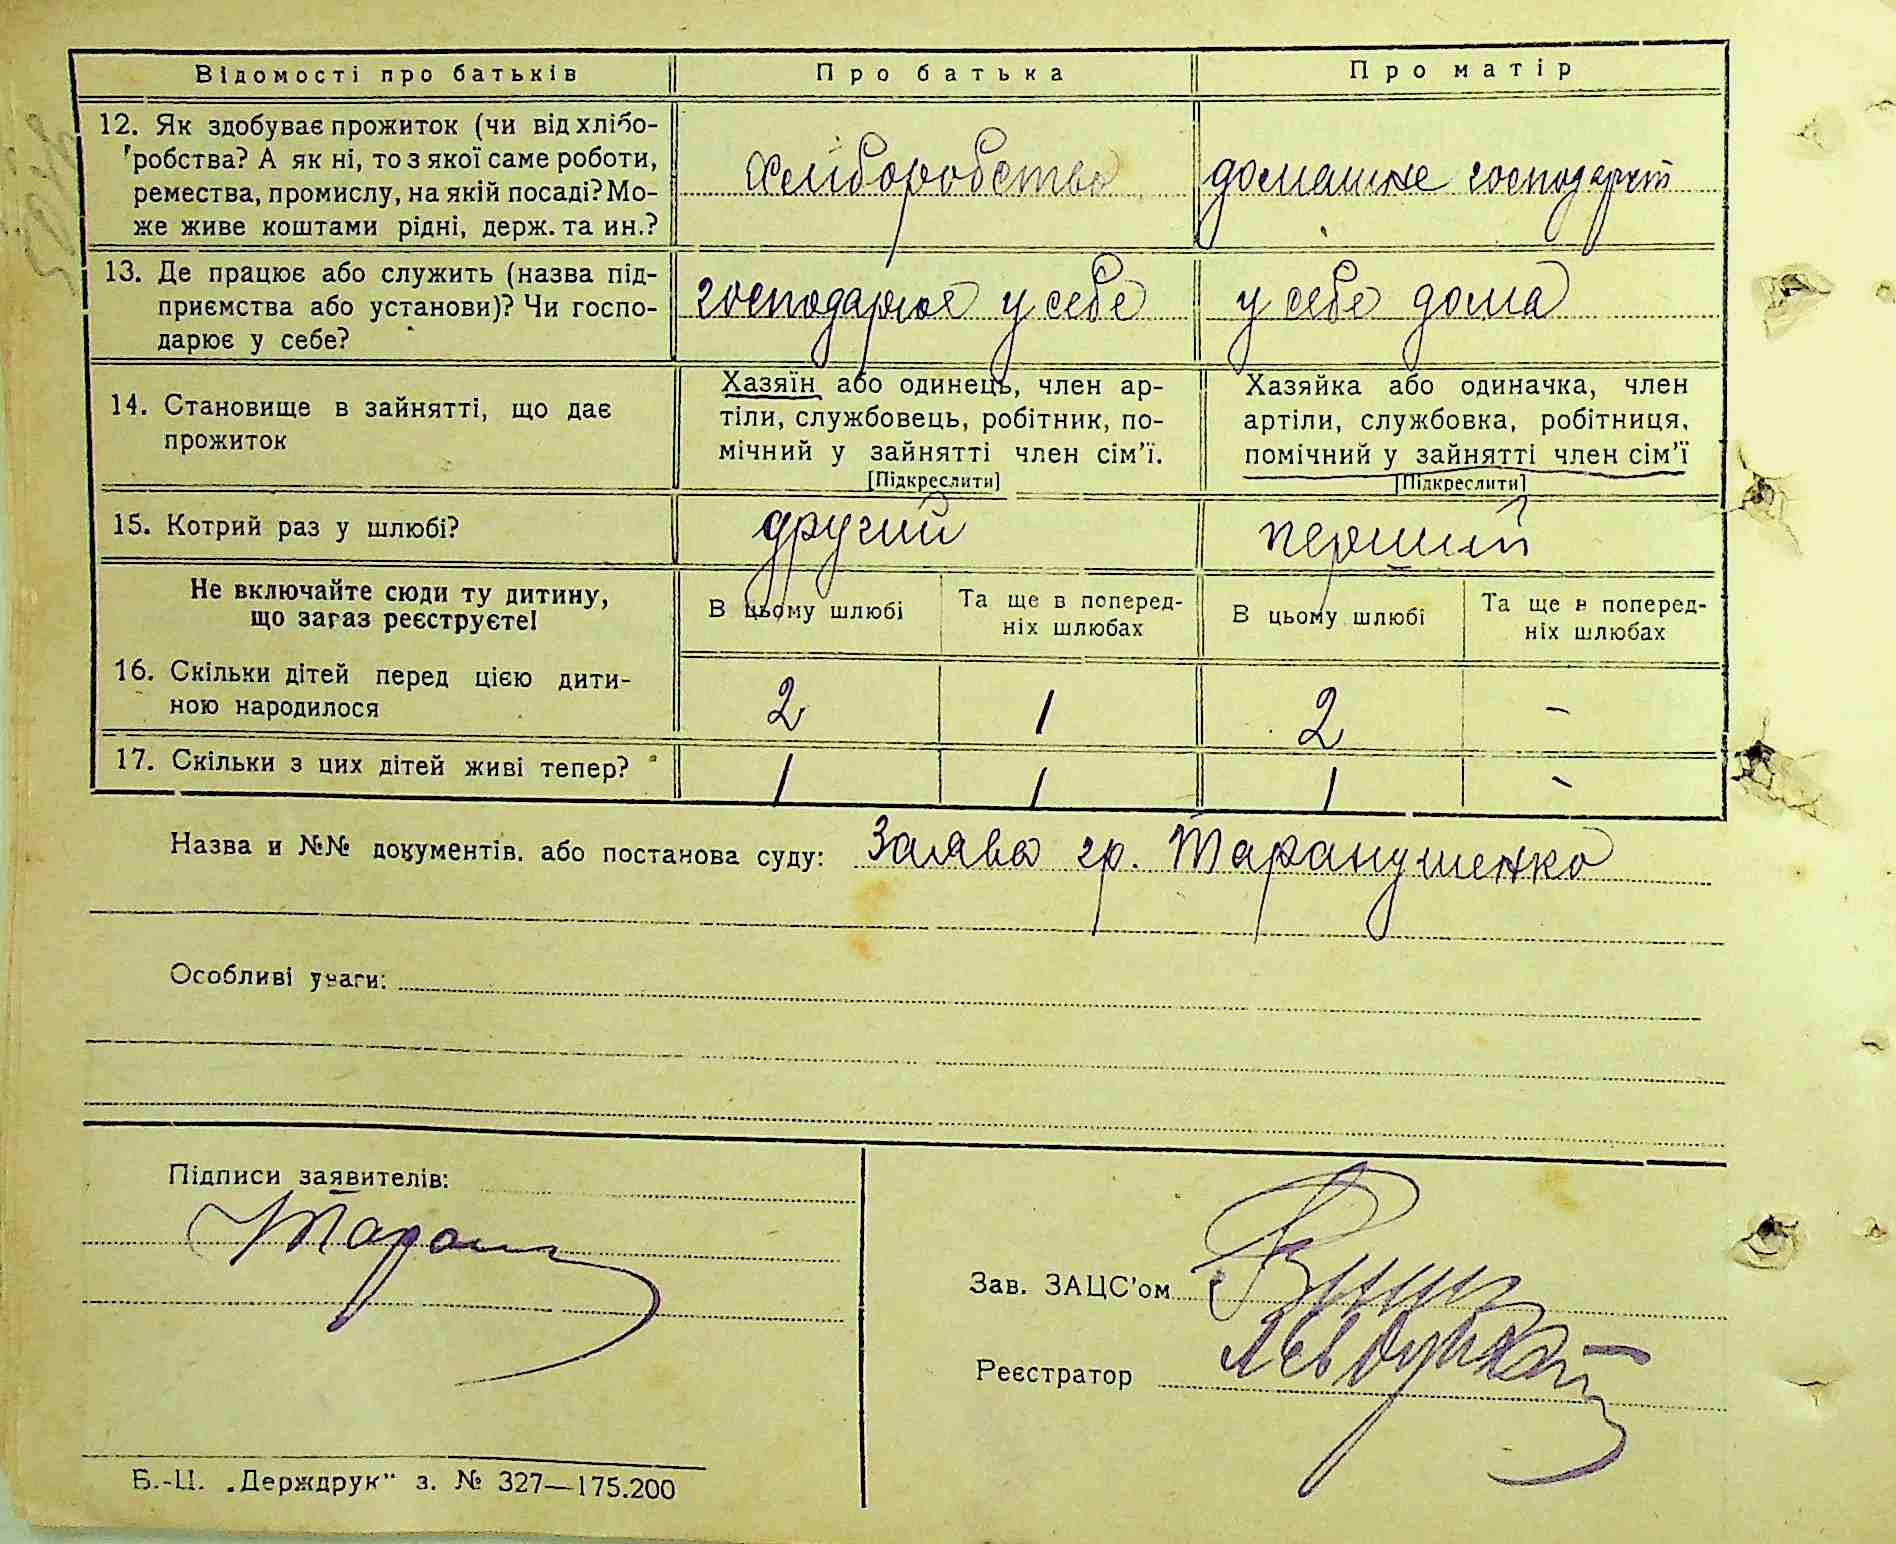 Відомості про батьків Про батька Про матір
12. Як здобуває прожиток (чи від хлібо-
робства? А як ні, то з якої саме роботи,
ремества, промислу, на якій посаді? Мо-
же живе коштами рідні, держ. та ин.?
хліборобство домашнє господарст
13. Де працює або служить (назва під-
приємства або установи)? Чи госпо-
дарює у себе?
господарює у себе у себе дома
14. Становище в зайнятті, що дає
прожиток
Хазяїн або одинець, член ар-
тіли, службовець, робітник, по-
мічний у зайнятті член сім'ї.
[Підкреслити]
Хазяйка або одиначка, член
артіли, службовка, робітниця,
помічний у зайнятті член сім'ї
[Підкреслити]
15. Котрий раз у шлюбі? другий першій
Не включайте сюди ту дитину,
що зараз реєструєте!
В цьому шлюбі
Та ще в поперед-
ніх шлюбах
В цьому шлюбі
Та ще в поперед-
ніх шлюбах
16. Скільки дітей перед цією дити-
ною народилося
2 1 2 -
17. Скільки з цих дітей живі тепер? 1 1 1 -
Назва и №№ документів. або постанова суду: Заява гр. Таранушенко
Особливі уваги:
Підписи заявителів:
Таран
Зав. ЗАЦС'ом
Реєстратор
Б.-Ц. „Держдрук" з. № 327—175.200